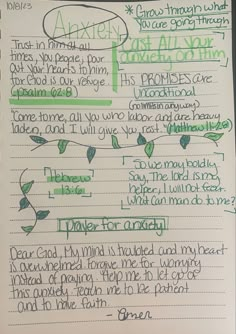 10/8/23
Anxiety
* Grow through what
you are going through
Trust in him at all
times, you people; pour
out your hearts to him,
for God is our refuge.
(psalm 62:8)
Cast ALL your
anxiety on Him
His PROMISES are
unconditional
(no limits in any way)
"Come to me, all you who labor and are heavy
laden, and I will give you rest." (Matthew 11:28)
Hebrews
13:6
So we may boldly
say, The Lord is my
helper, I will not fear.
What can man do to me?
prayer for anxiety
Dear God, My mind is troubled and my heart
is overwhelmed. Forgive me for worrying
instead of praying. Help me to let go of
this anxiety. Teach me to be patient
and to have faith.
- Amen